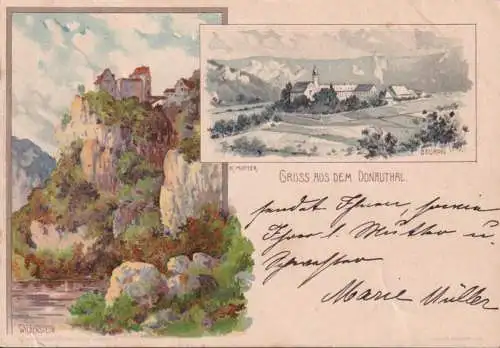 BEURON
K. MUTTER
GRUSS AUS DEM DONAUTHAL.
sendet Ihnen, sowie
Ihrer l. Mutter u
Schwester
Marie Müller
WILDENSTEIN